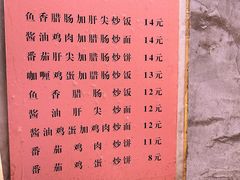 鱼香腊肠加肝尖炒饭 14元
酱油腊肠加肝尖炒面 14元
番茄腊肠加肝尖炒饼 14元
咖喱鸡蛋加腊肠炒饭 13元
鱼香腊肠炒饭 12元
酱油肝尖炒面 12元
酱油鸡蛋加鸡肉炒面 12元
番茄鸡肉炒饼 11元
番茄鸡蛋炒饼 8元